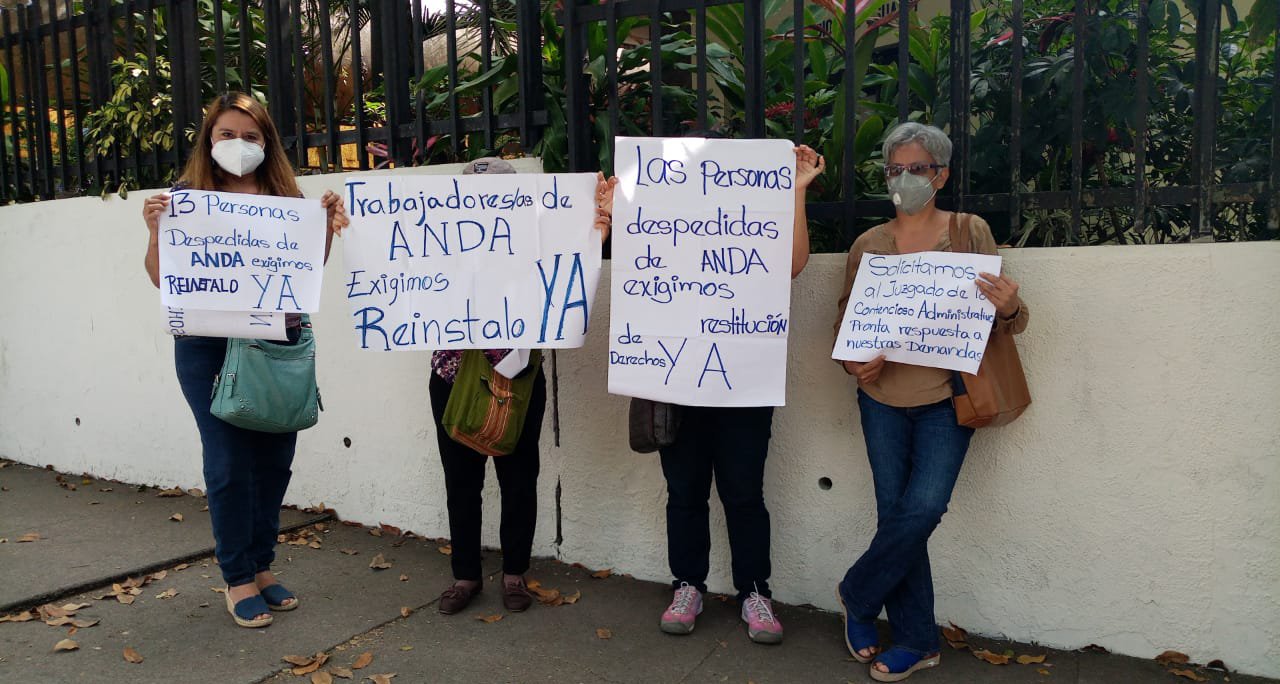 13 Personas
Despedidas de
ANDA exigimos
REINSTALO YA
Trabajadores/as de
ANDA
Exigimos
Reinstalo YA
Las Personas
despedidas
de ANDA
exigimos
restitución
de
Derechos YA
Solicitamos
al Juzgado de lo
Contencioso Administrativo
Pronta respuesta a
nuestras Demandas